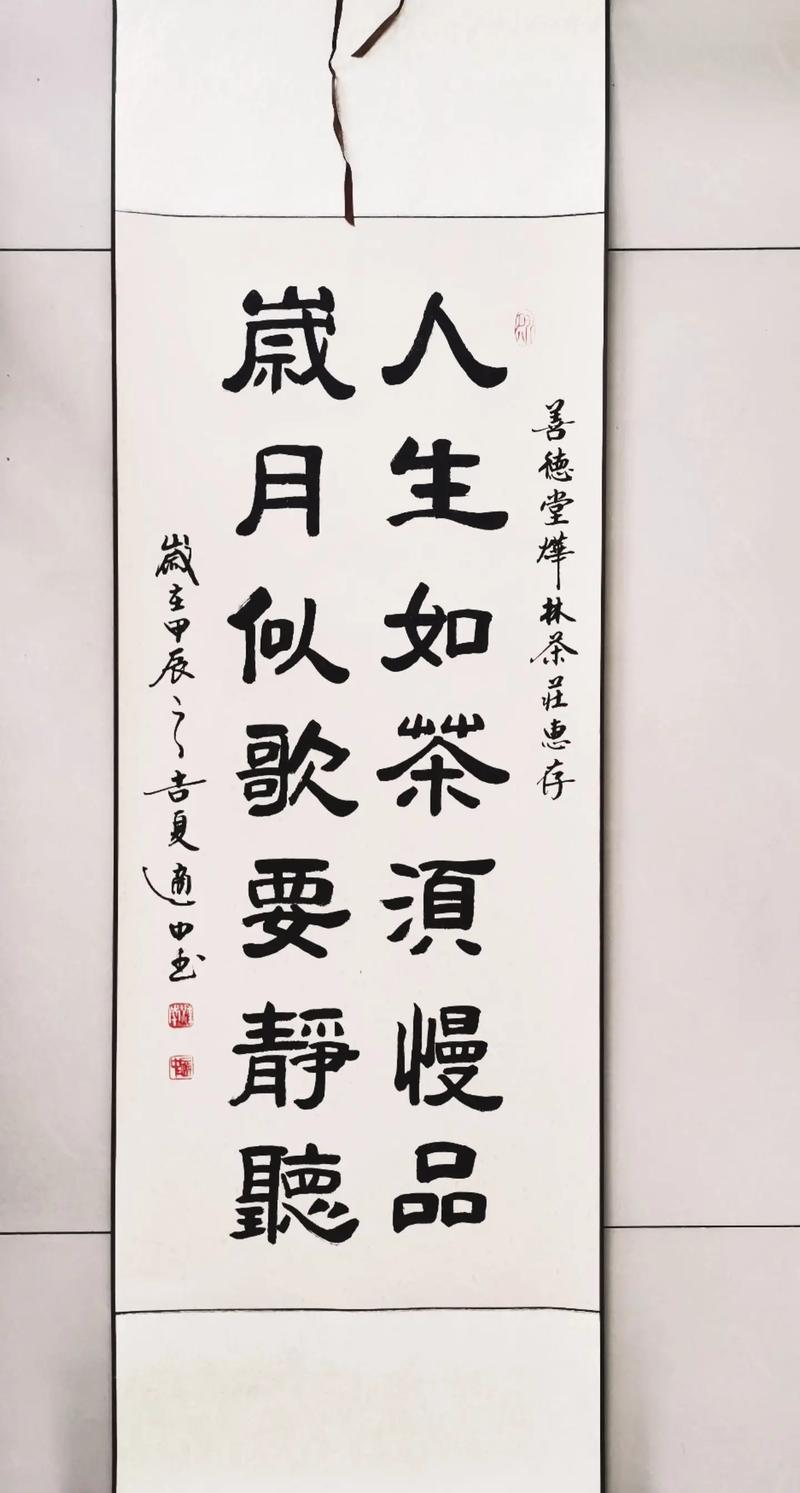 善德堂燁林茶莊惠存
人生如茶須慢品
歲月似歌要靜聽
歲在甲辰之吉夏適中書